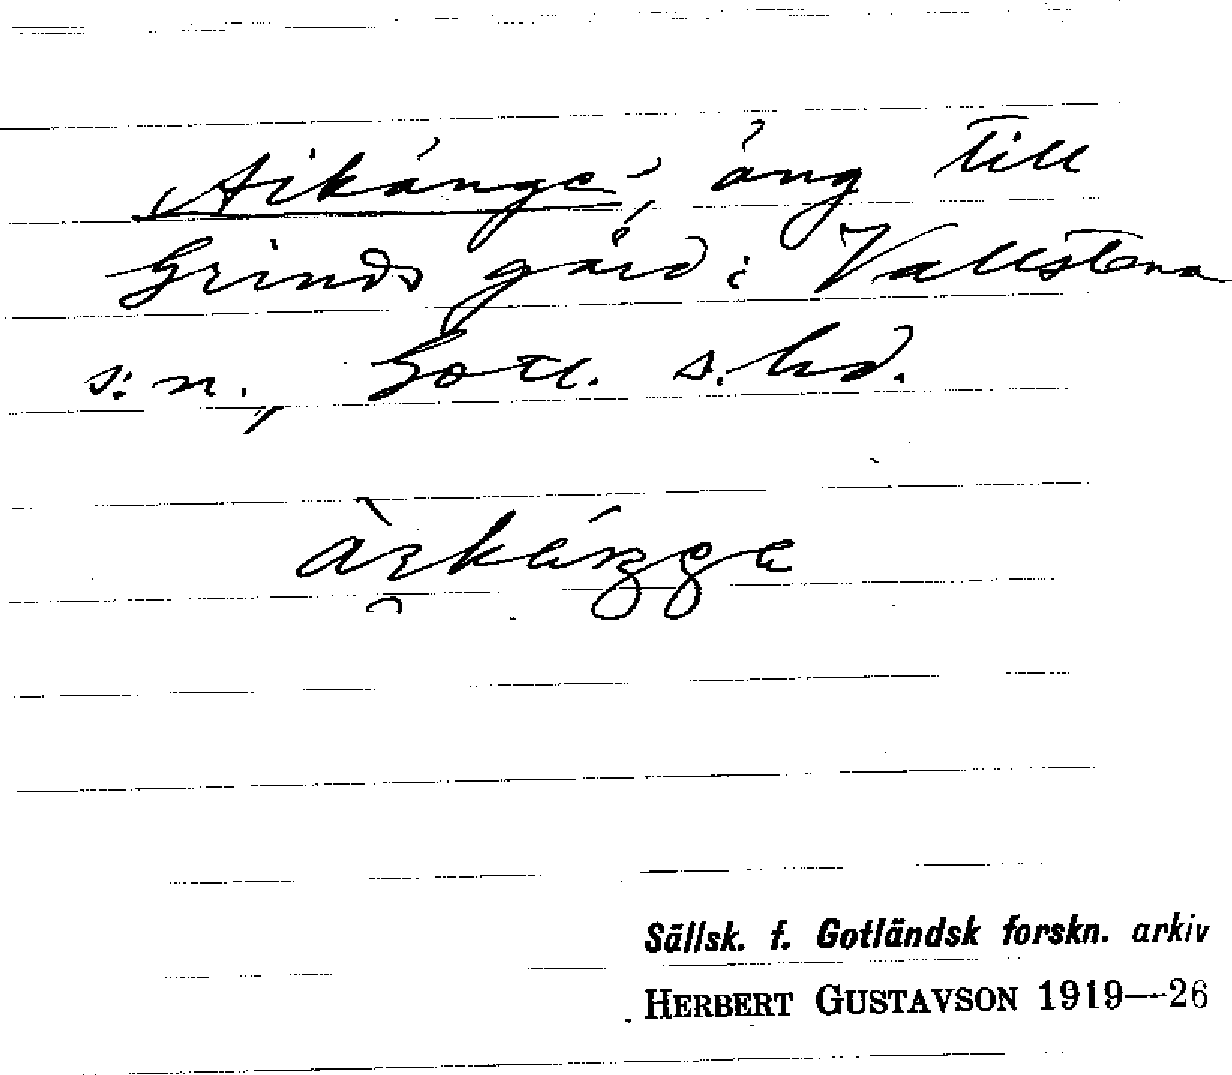 Aikänge, äng till
Grinds gård i Vallstena
s:n., Gotl. s. hd.
Sällsk. f. Gotländsk forskn. arkiv
HERBERT GUSTAVSON 1919—26